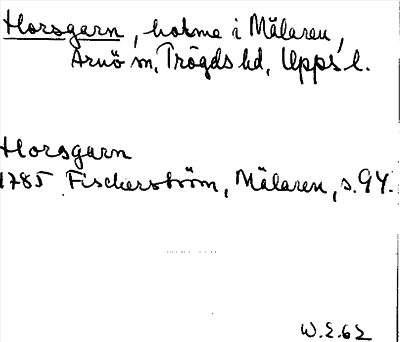 Horsgarn, holme i Mälaren,
Arnö sn, Trögds hd, Upps l.
Horsgarn
1785 Fischerström, Mälaren, s. 94.
W.E. 62